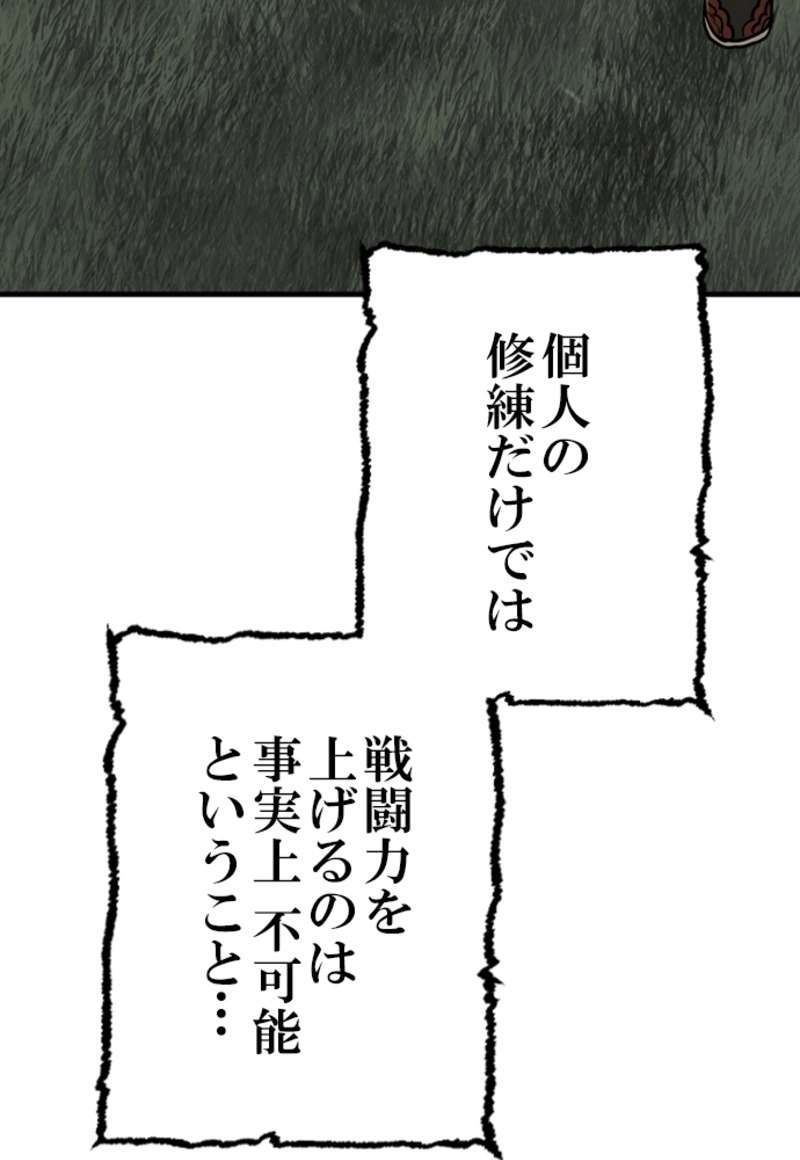 個人の
修練だけでは
戦闘力を
上げるのは
事実上 不可能
ということ…